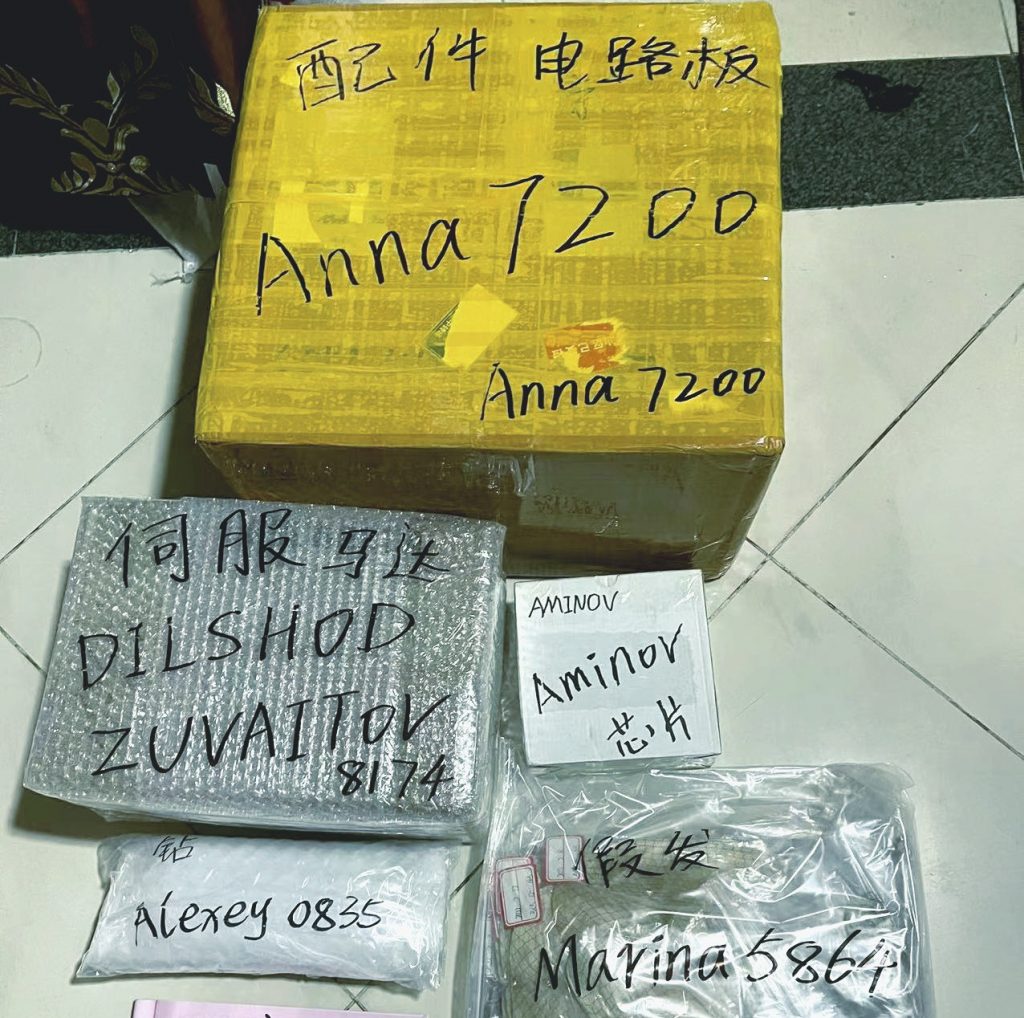 配件 电路板
Anna 7200
Anna 7200
伺服马达
DILSHOD
ZUVAITOV
8174
AMINOV
Aminov
芯片
钻
Alexey 0835
假发
Marina 5864